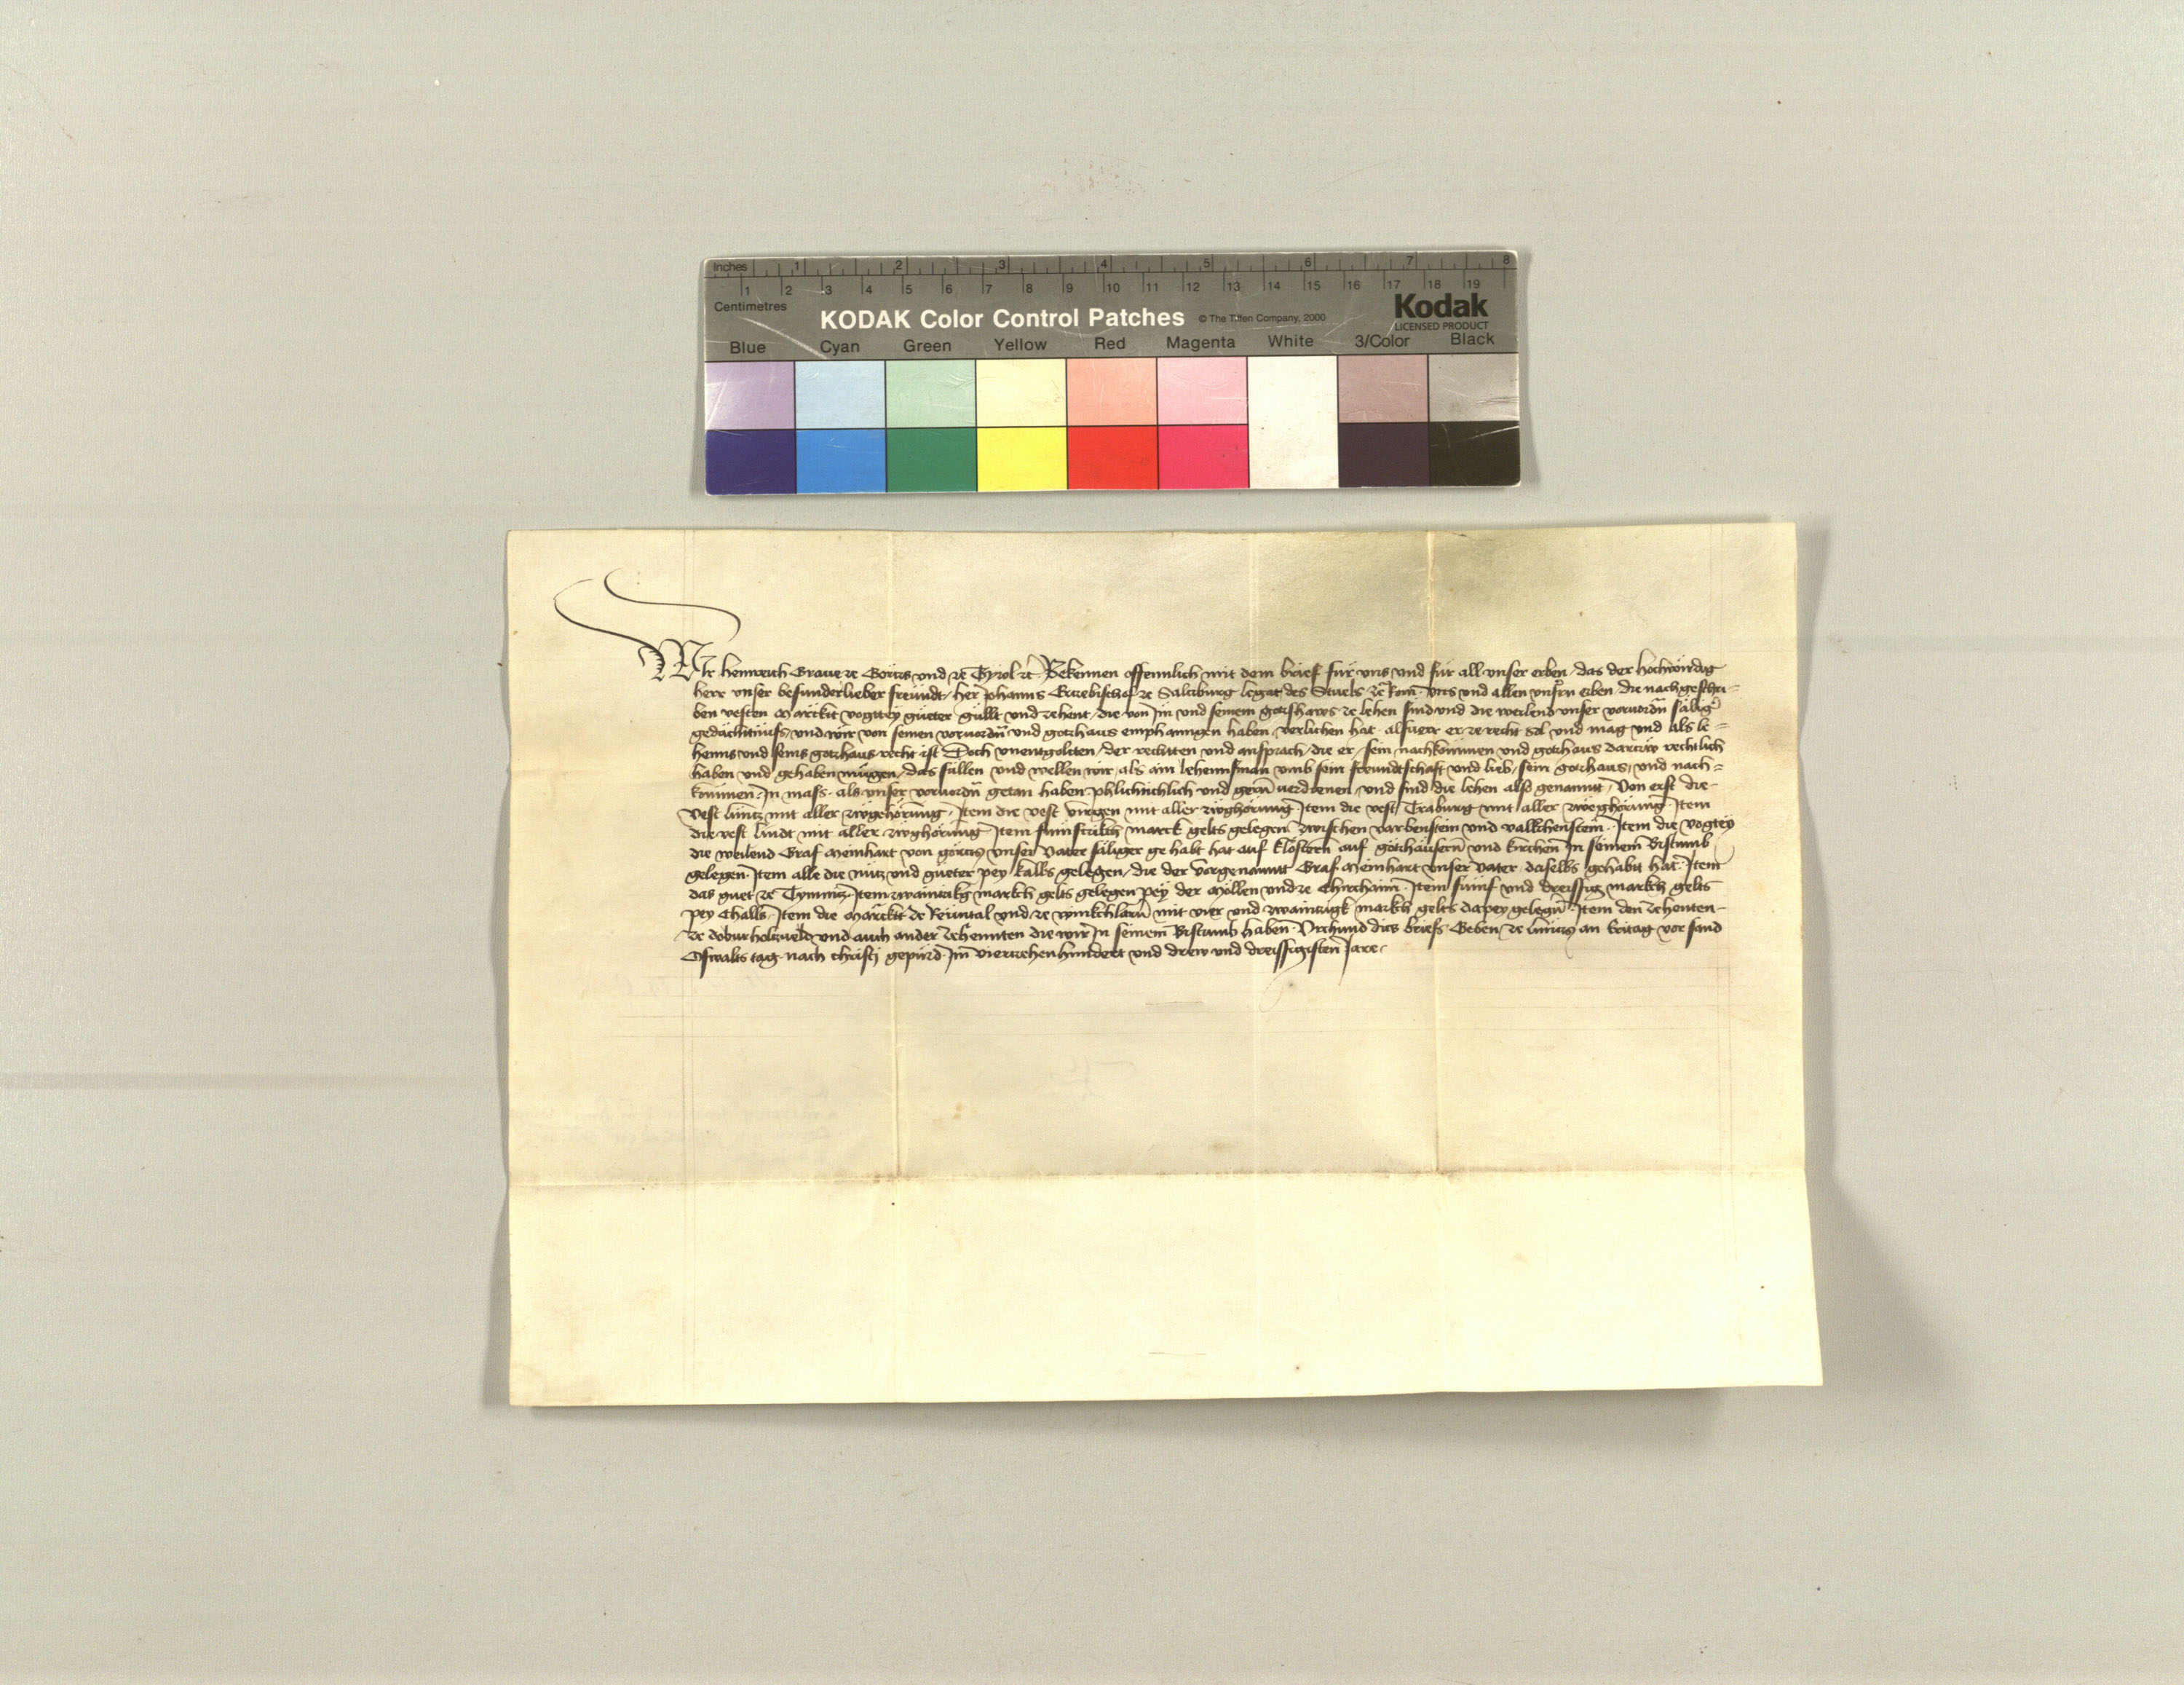 Inches 1 2 3 4 5 6 7 8
1 2 3 4 5 6 7 8 9 10 11 12 13 14 15 16 17 18 19
Centimetres
KODAK Color Control Patches © The Tiffen Company, 2000 Kodak
LICENSED PRODUCT
Blue Cyan Green Yellow Red Magenta White 3/Color Black
Wir Heinreich Graue ze Görtz und ze Tyrol etc Bekennen offennlich mit dem brief für uns und für all unser erben das der hochwirdig
herr unser besunderlieber freundt her Johanns Ertzebischof ze Saltzburg legat des Stuels ze Rom uns und allen unsern erben die nachgeschri-
ben vesten märckt vogttey güeter güllt und zehent die von im und seinem gotzhaws ze lehen sind und die weilend unser voruordn säliger
gedächtnüss und wir von seinen voruordn und gotzhaus emphanngen haben verlichen hat alsuerr er ze recht sol und mag und als le-
henns und seins gotzhaus recht ist Doch unentgolten der rechten und ansprach die er sein nachkomen und gotzhaus dartzw rechtlich
haben und gehaben mügen das süllen und wellen wir als ain lehennsman umb sein freundtschaft und lieb sein gotzhaus und nach-
komen In mass als unser voruordn getan haben phlichtichlich und gern uerdienen und sind die lehen also genannt Von erst die
vest lüntz mit aller zwgehörung Item die vest virgen mit aller zwghörung Item die vest Traburg mit aller zwghörung Item
die vest lindt mit aller zwghörung Item fumftzikch marck gelts gelegen zwischen varbenstein und valkchenstein Item die vogtey
die weilend Graf Meinhart von görtz unser vater säliger gehabt hat auf klöstern auf gotzhäusern und kirchen In seinem Bistumb
gelegen Item alle die nütz und güeter pey kalls gelegen die der vorgenannt Graf Meinhart unser vater daselbs gehabt hat Item
das guet ze Tymnitz Item zwaintzikg markch gelts gelegen pey der Möllen und ze Chirchaim Item fümf und dreissig markch gelts
pey Challs Item die Märckt ze Reintal und ze winkchlarn mit vier und zwaintzigk markch gelts dapey gelegn Item den zehenten
ze doburholtzueld und auch ander zehennten die wir In seinem Bistumb haben Urchund dits briefs Geben ze lüntz an freitag vor sand
Oswalts tag nach christi gepürd Im viertzehenhundert und drew und dreissigisten Jare